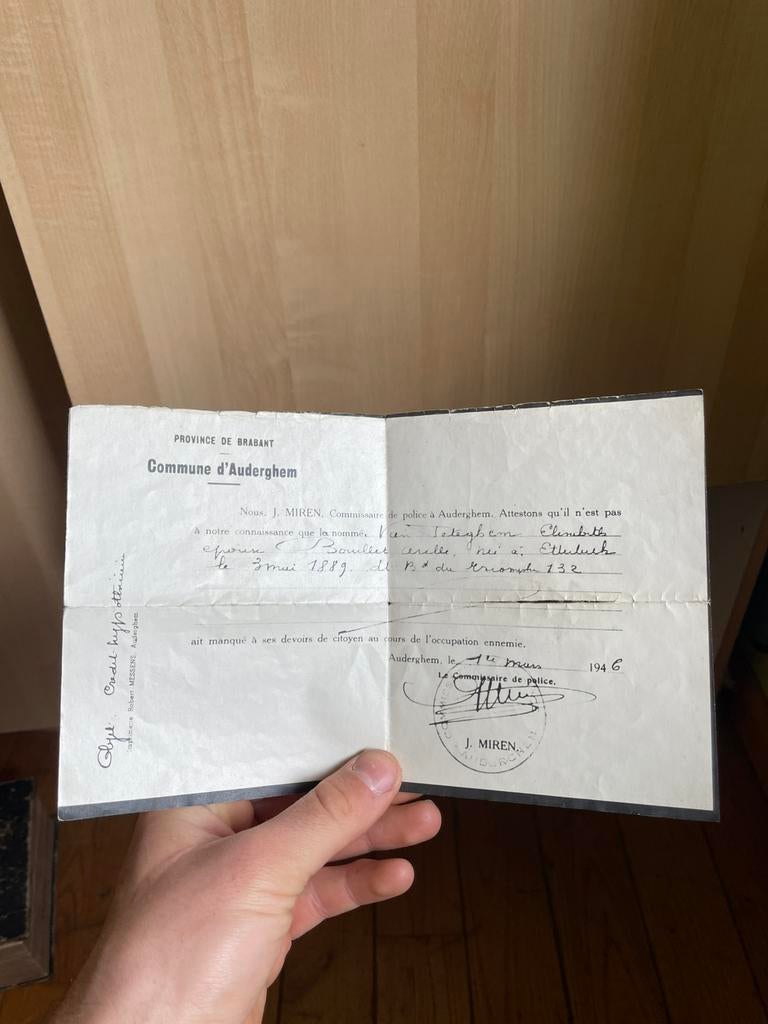 PROVINCE DE BRABANT
Commune d'Auderghem
Nous, J. MIREN, Commissaire de police à Auderghem. Attestons qu'il n'est pas
à notre connaissance que la nommé Van Isteghem Elisabeth
épouse Bouillet née à Etterbeek
le 3 mai 1889. dt Bd du Triomphe 132
ait manqué à ses devoirs de citoyen au cours de l'occupation ennemie.
Auderghem, le 1er mars 1946
Le Commissaire de police,
J. MIREN.
COMMISS AUDERGHEM
Objet: Crédit hypothécaire
Imprimerie Robert MESSENS, Auderghem